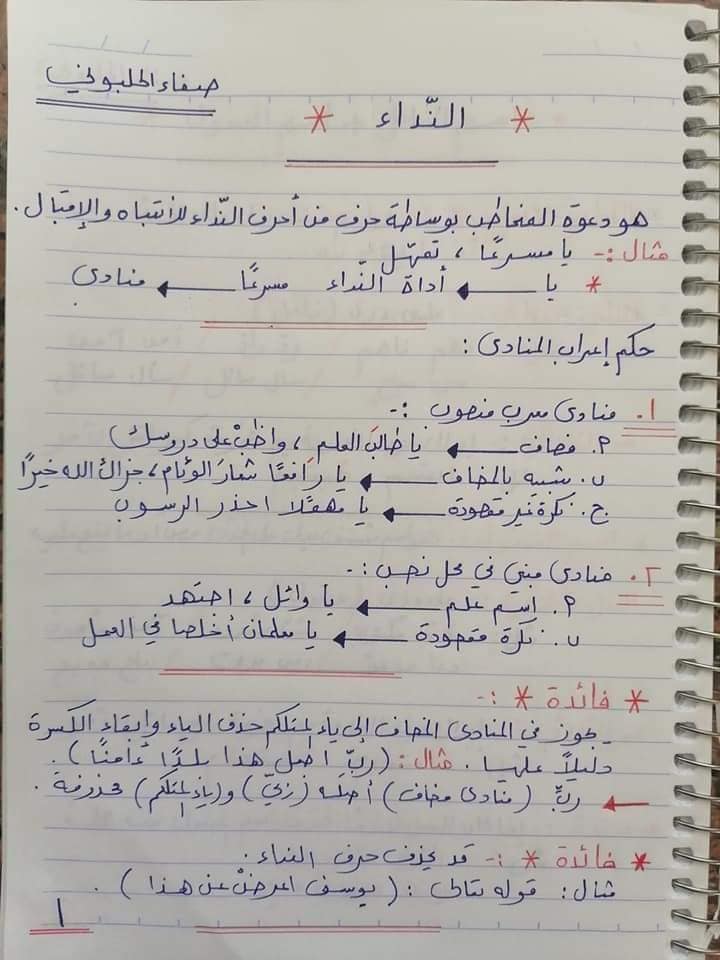 صفاء الحلبوني
* النّداء *
هو دعوة المخاطب بوساطة حرف من أحرف النّداء للأنتباه والإقبال.
مثال :- يا مسرعًا ، تمهّل
* يا ← أداة النّداء مسرعًا ← منادى
حكم إعراب المنادى :
١. منادى معرب منصوب :-
٢. مضاف ← يا طالبَ العلم ، واظبْ على دروسك
ب. شبيه بالمضاف ← يا رافعًا شعارَ الوئام ، جزاك الله خيرًا
ج. نكرة غير مقصودة ← يا مهملًا احذر الرسوب
٢. منادى مبني في محل نصب :-
٢. إسم علم ← يا وائل ، اجتهد
ب. نكرة مقصودة ← يا معلمان أخلصا في العمل
* فائدة * :-
يجوز في المنادى المضاف إلى ياء المتكلم حذف الياء وإبقاء الكسرة
دليلًا عليها . مثال : (ربِّ اجعل هذا بلدًا ءامنًا) .
← ربِّ (منادى مضاف) أصله (ربّي) و(ياء المتكلم) محذوفة .
* فائدة * :- قد يحذف حرف النداء .
مثال : قوله تعالى : (يوسف اعرضْ عن هذا) .
١